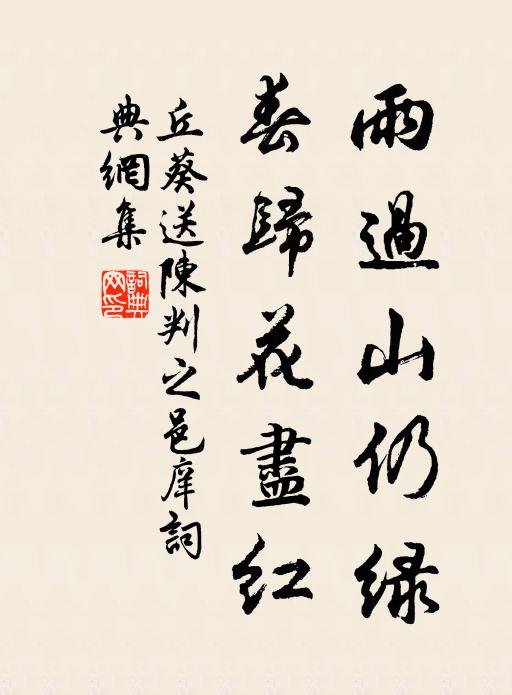 雨過山仍綠
春歸花盡紅
丘葵送陳判之邑庠詞
典網集
詞典網印